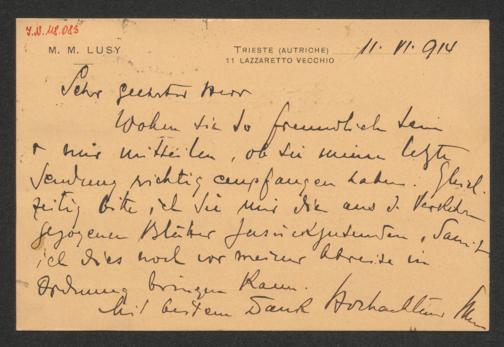 I.N. 118.085
M. M. LUSY
TRIESTE (AUTRICHE)
11 LAZZARETTO VECCHIO
11. VI. 914
Sehr geehrter Herr
Wollen Sie so freundlich sein
& mir mitteilen, ob Sie meine letzte
Sendung richtig empfangen haben. Gleich-
zeitig bitte ich Sie mir die aus d. Verkehr
gezogenen Blätter zurückzusenden, damit
ich dies noch vor meiner Abreise in
Ordnung bringen kann.
Mit bestem Dank Hochachtend